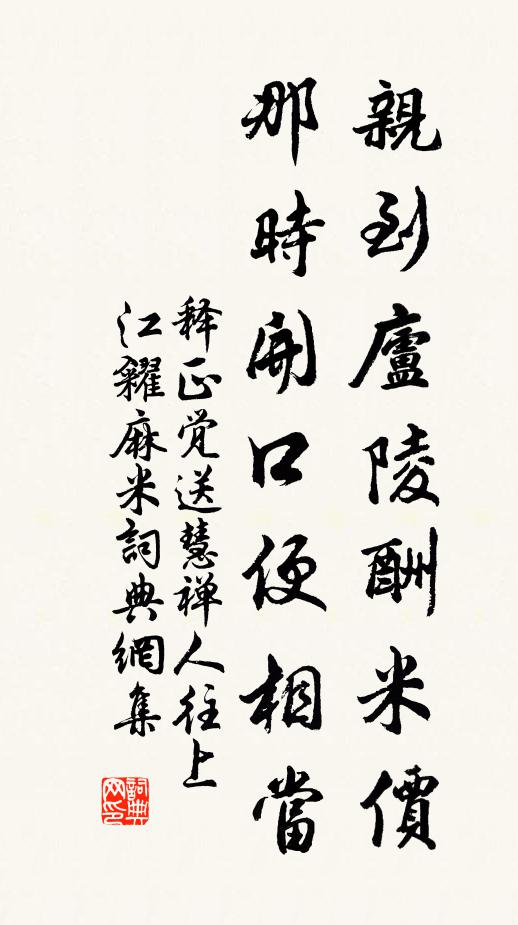 親到廬陵酬米價
那時開口便相當
释正觉送慧禅人往上
江糴麻米詞典網集
詞典網印